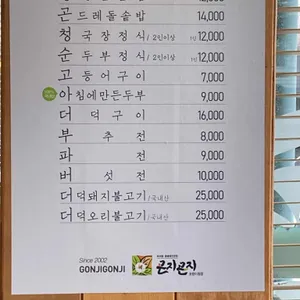 곤드레돌솥밥 14,000
청국장정식/2인이상 1인12,000
순두부정식/2인이상 1인12,000
고등어구이 7,000
아침에만든두부 9,000
더덕구이 16,000
부추전 8,000
파전 9,000
버섯전 10,000
더덕돼지불고기/국내산 25,000
더덕오리불고기/국내산 25,000
Since 2002
GONJIGONJI
곤지곤지